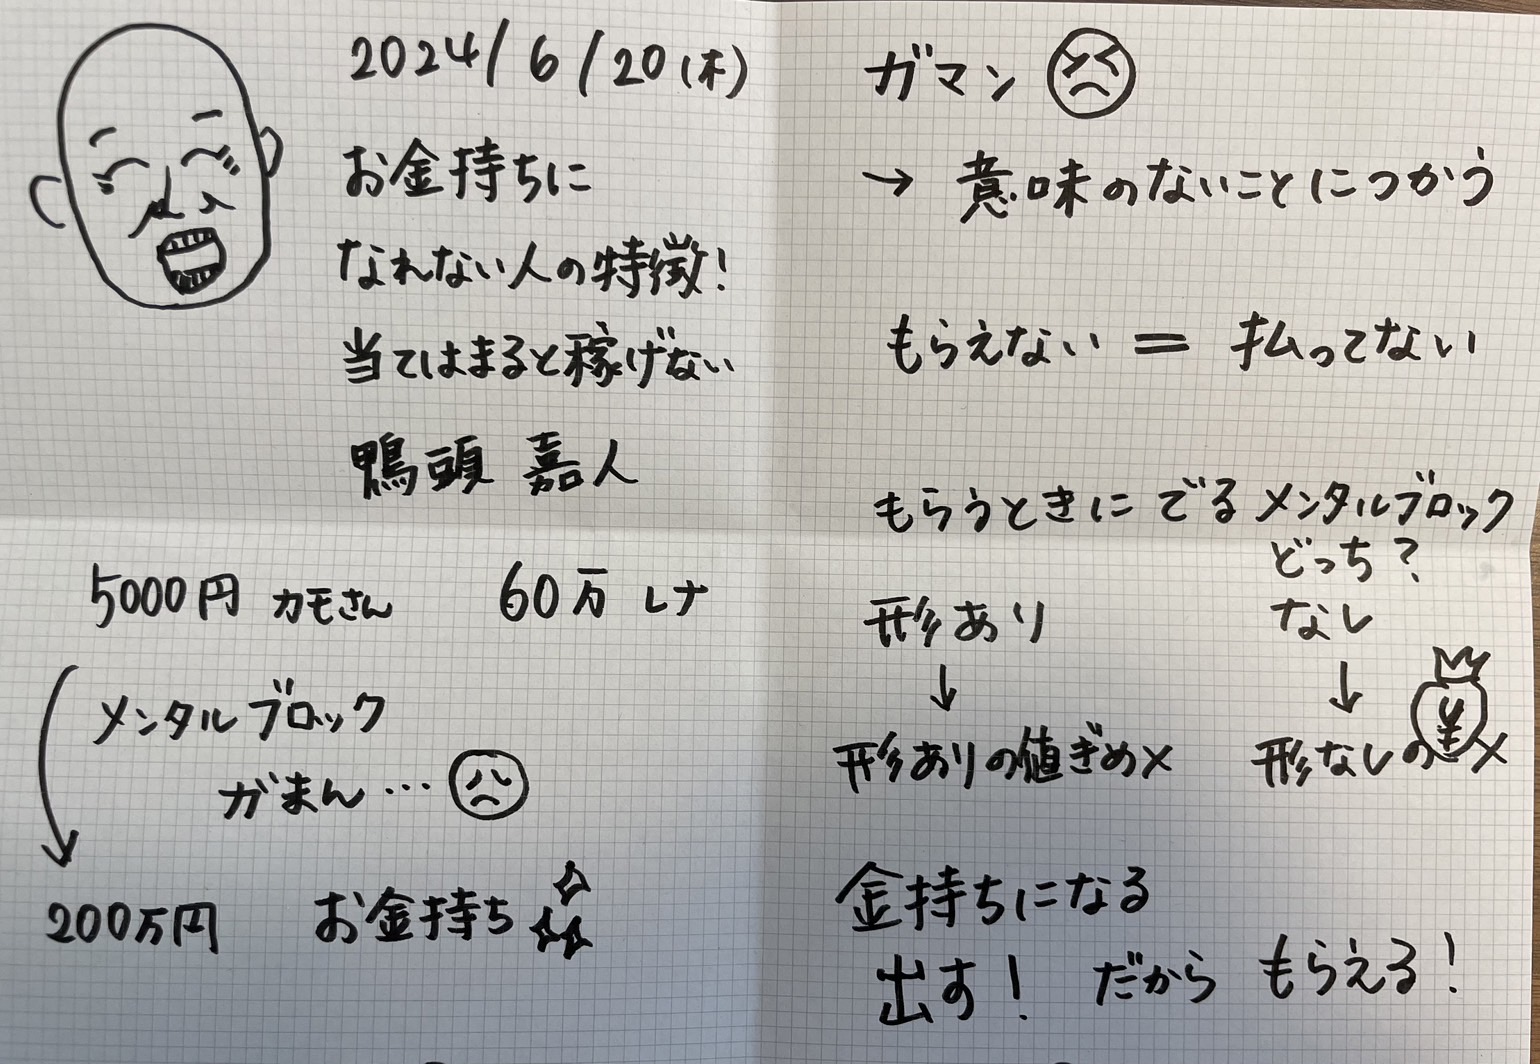 2024/6/20(木)
お金持ちに
なれない人の特徴!
当てはまると稼げない
鴨頭 嘉人
5000円 カモさん 60万 レナ
メンタルブロック
がまん…
200万円 お金持ち
ガマン
→ 意味のないことにつかう
もらえない = 払ってない
もらうときに でる メンタルブロック
どっち?
形あり なし
↓ ↓
¥
形ありの値ぎめ× 形なしの×
金持ちになる
出す! だから もらえる!